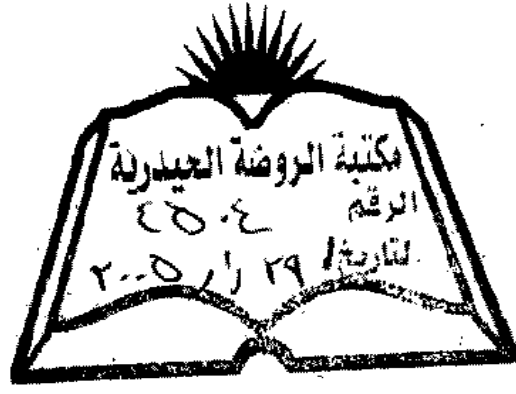 مكتبة الروضة الحيدرية
الرقم ٤٥٠٤
لتاريخ/ ٢٩ / ٢٠٠٥